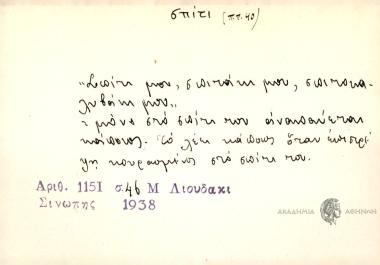 σπίτι (π.π. 40)
"Σπίτι μου, σπιτάκι μου, σπιτοκα-
λυβάκι μου„
μόνο στό σπίτι του ἀναπαύεται
κάποιος. Τό λέει κάποιος ὅταν ἐπιστρέ-
ψῃ κουρασμένος στό σπίτι του.
Αριθ. 1151 σ.46 Μ Λιουδακι
Σινωπης 1938
ΑΚΑΔΗΜΙΑ ΑΘΗΝΩΝ